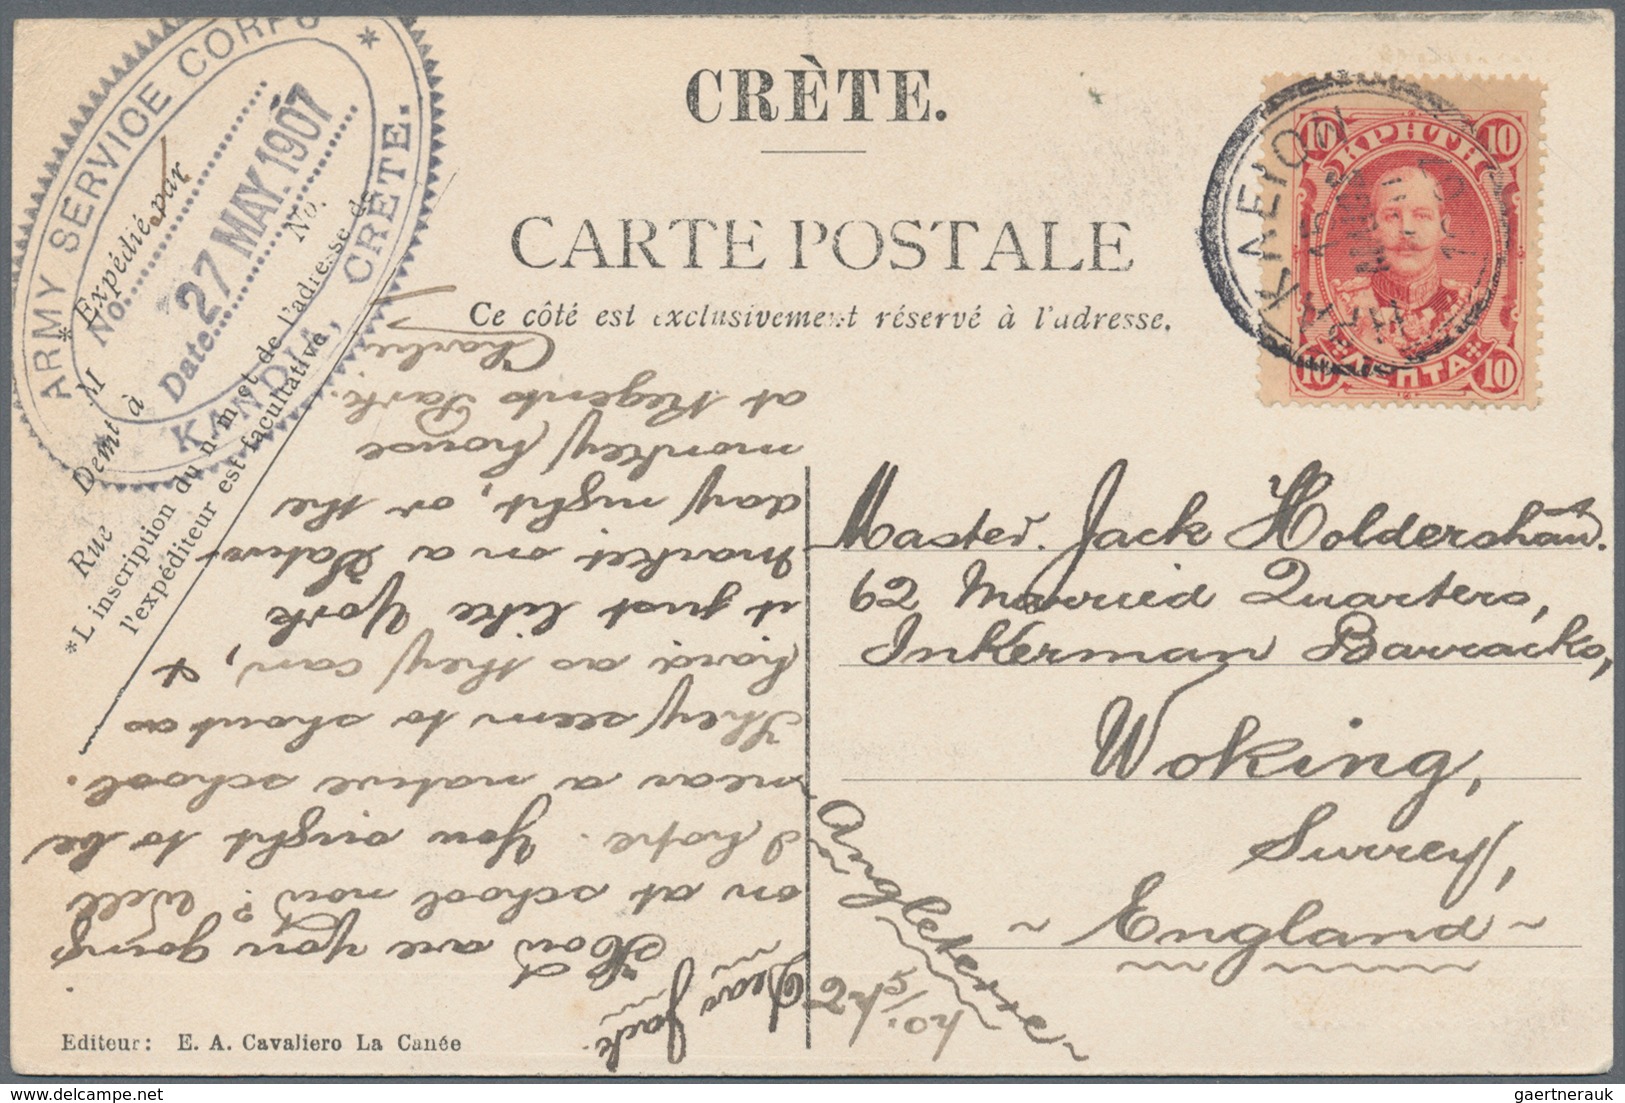 CRÈTE.
CARTE POSTALE
Ce côté est exclusivement réservé à l'adresse.
ARMY SERVICE CORPS
No.
27 MAY. 1907
Date
No.
KANDIA, CRETE.
* Expédié par
M
Demt à
Rue
*L inscription du n m et de l'adresse de
l'expéditeur est facultative
ΚΡΗΤΗ
10 10
10 ΛΕΠΤΑ 10
Master. Jack Holdershaw.
62 Married Quarters,
Inkerman Barracks,
Woking,
Surrey,
~ England ~
Angleterre
24/5/07.
Dear Jack.
How are you going
on at school now? Well
I hope. You ought to be
near a native school.
They seem to shout as
hard as they can, &
it just like York
market on a Satur-
day night, or the
monkey house
at Regents Park.
Charlie
Editeur: E. A. Cavaliero La Canée
gaertnerauk @ delcampe.net